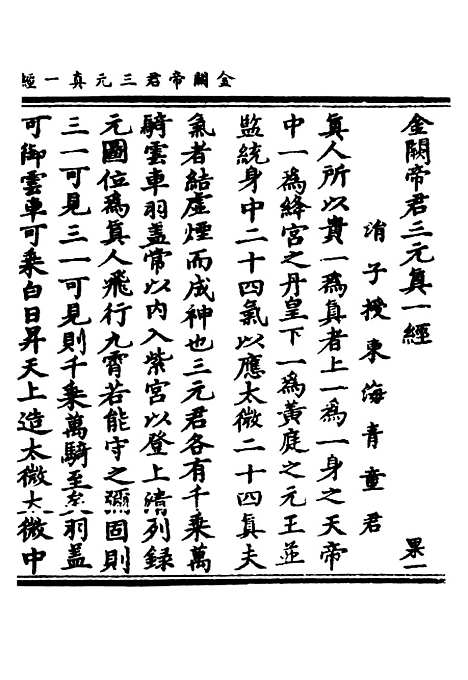 金闕帝君三元真一經
金闕帝君三元真一經　果一
涓子授東海青童君
真人所以貴一為真者上一為一身之天帝
中一為絳宮之丹皇下一為黃庭之元王並
監統身中二十四氣以應太微二十四真夫
氣者結虛煙而成神也三元君各有千乘萬
騎雲車羽蓋常以內入紫宮以登上清列錄
元圖位為真人飛行九霄若能守之彌固則
三一可見三一可見則千乘萬騎至矣羽蓋
可御雲車可乘白日昇天上造太微太微中